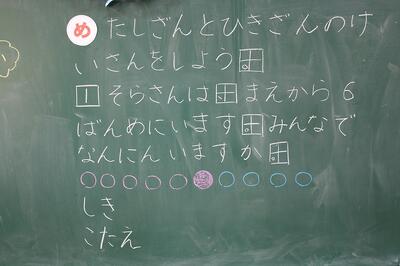 め たしざんとひきざんのけ
いさんをしよう。
1 そらさんは、まえから6
ばんめにいます。みんなで
なんにんいますか。
しき
こたえ